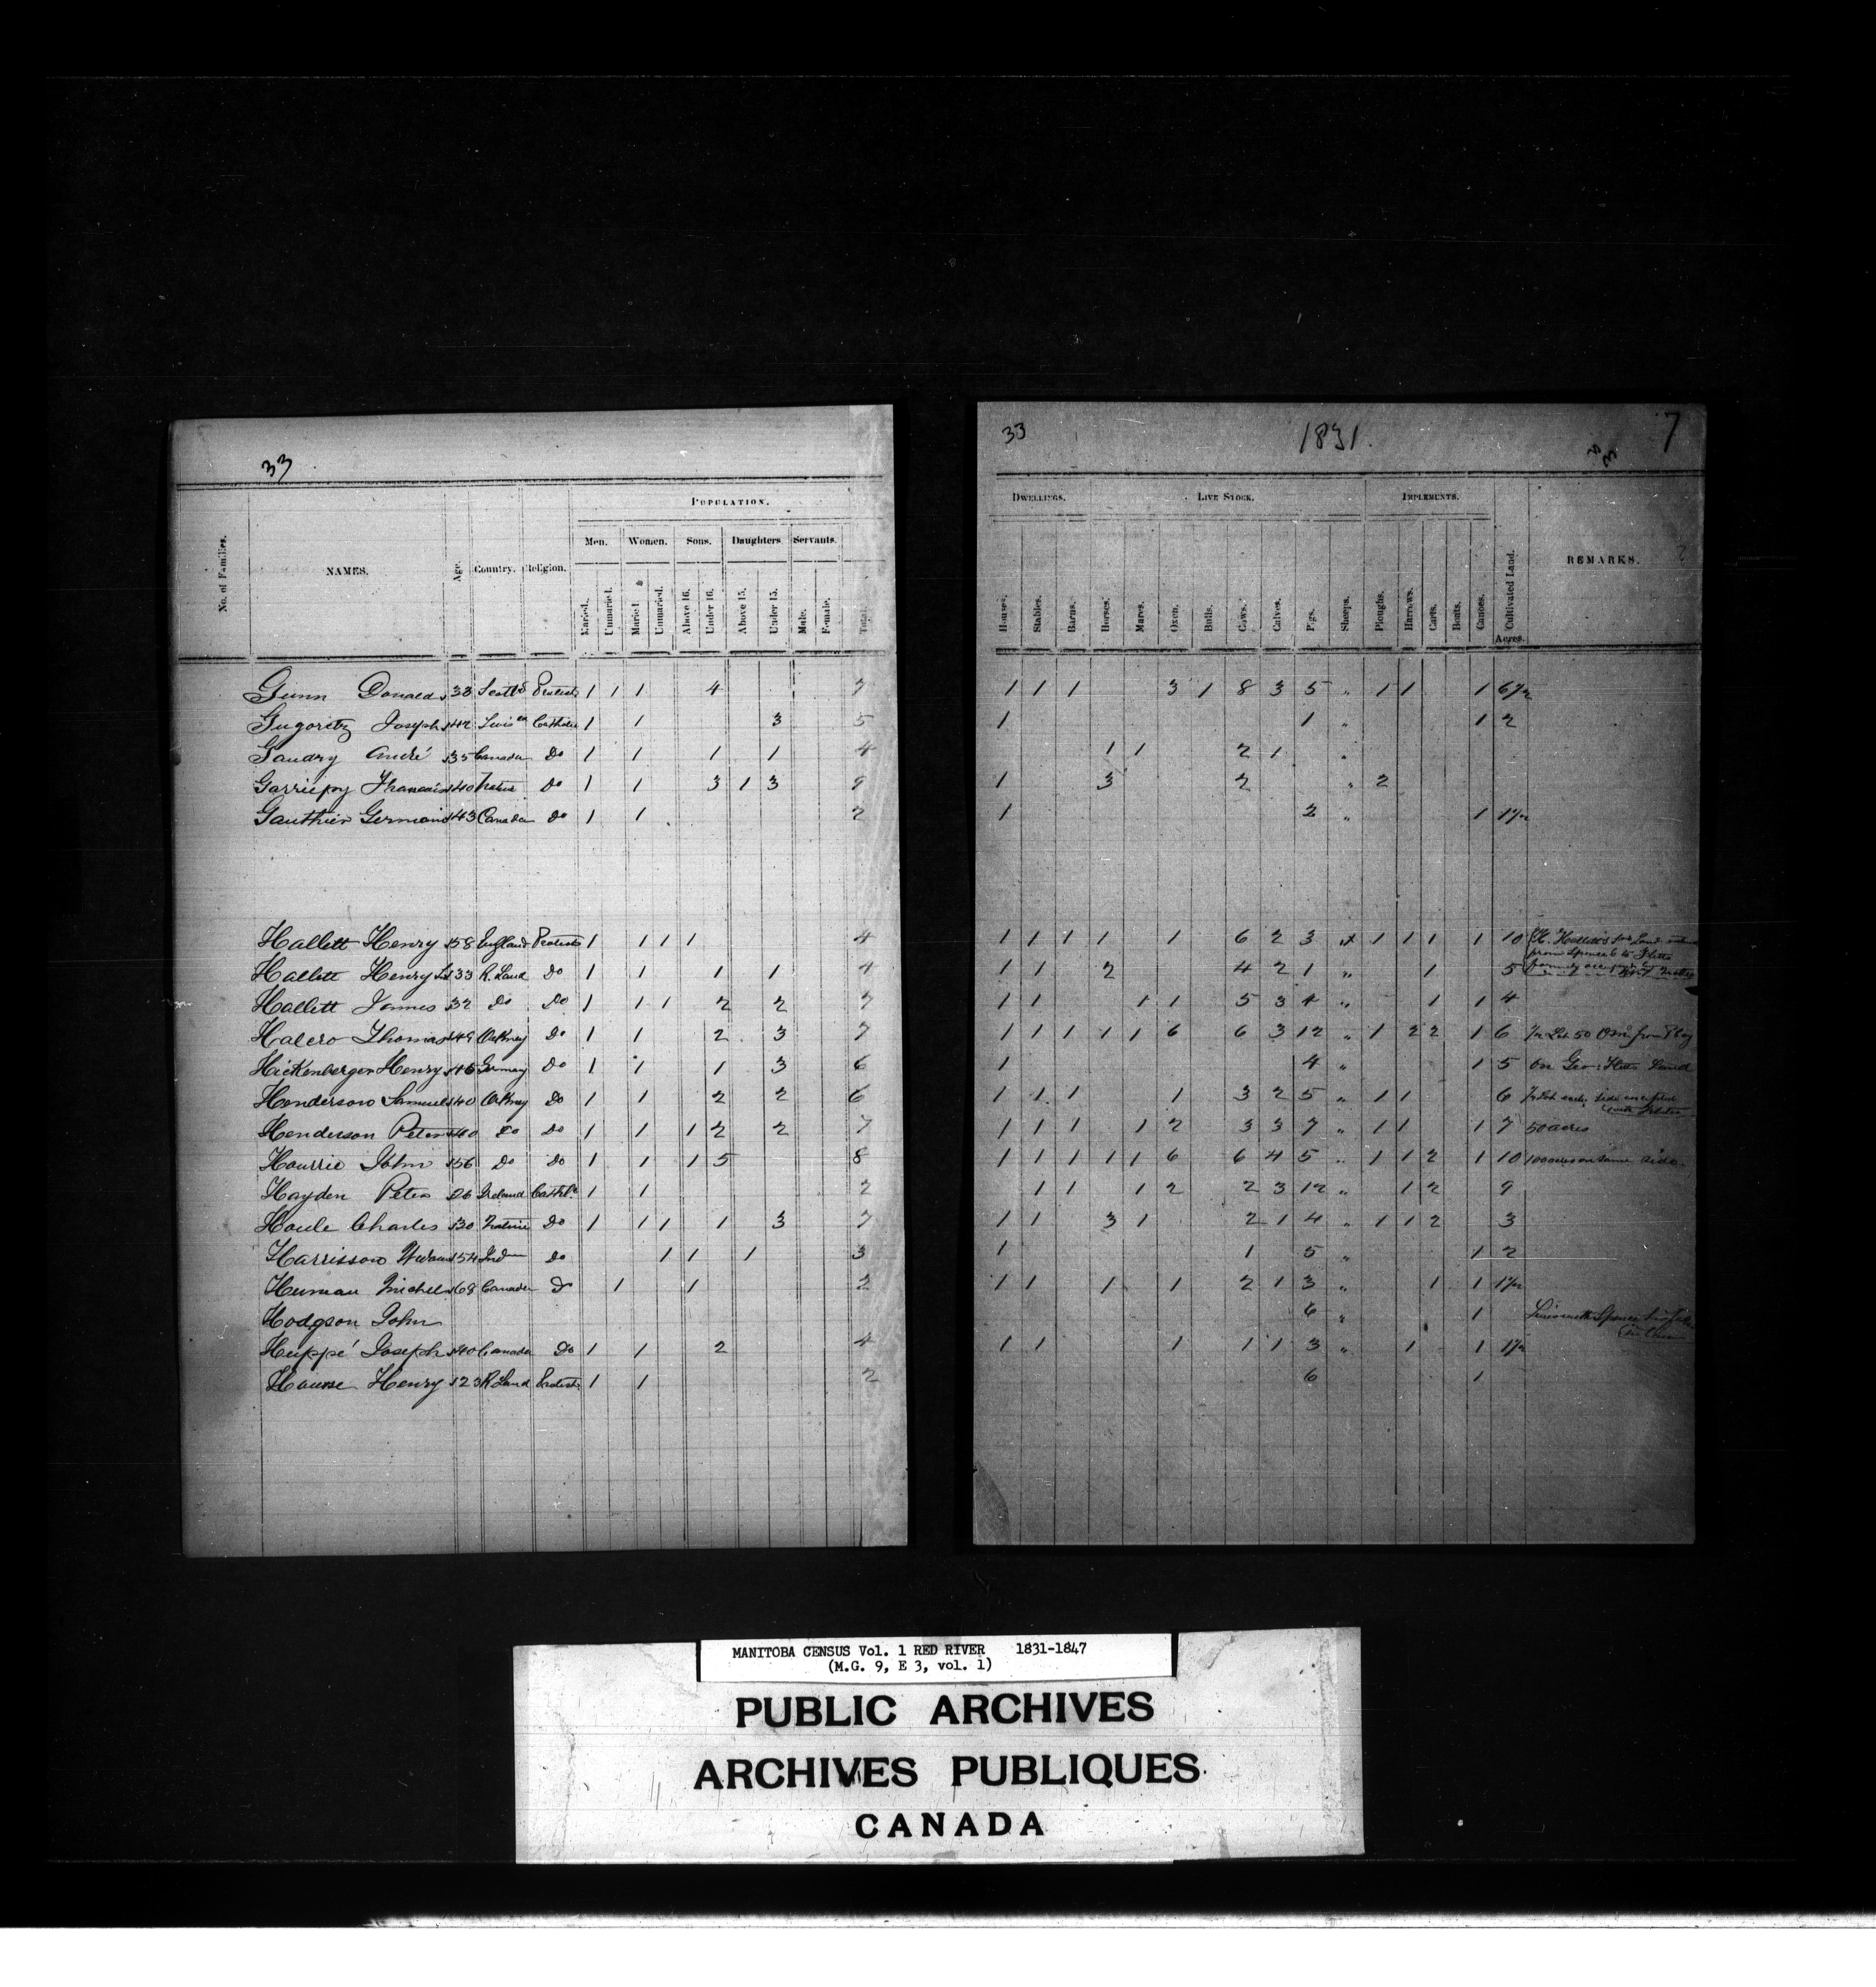 33
No. of Families.
NAMES.
Age.
Country.
Religion.
POPULATION.
Men.
Women.
Sons.
Daughters
Servants.
Married.
Unmarried.
Married.
Unmarried.
Above 16.
Under 16.
Above 15.
Under 15.
Male.
Female.
Total.
Gunn Donald 38 Scotld Protest 1 1 1 4 7
Gugoretz Joseph 42 Catholic 1 1 3 5
Gaudry André 35 Canada Do 1 1 1 1 4
Garriepy Francois 40 Native Do 1 1 3 1 3 9
Gauthier Germain 43 Canada Do 1 1 2
Hallett Henry 58 England Protest 1 1 1 1 4
Hallett Henry 33 R. Land Do 1 1 1 1 4
Hallett James 32 Do Do 1 1 1 2 2 7
Halcro Thomas 49 Orkney Do 1 1 2 3 7
Hickenberger Henry 46 Germany Do 1 1 1 3 6
Henderson Samuel 40 Orkney Do 1 1 2 2 6
Henderson Peter 40 Do Do 1 1 1 2 2 7
Hourrie John 56 Do Do 1 1 1 5 8
Hayden Peter 26 Ireland Cathlc 1 1 2
Houle Charles 30 Native Do 1 1 1 1 3 7
Harrisson 54 Ind Do 1 1 1 3
Michel 68 Canada Do 1 1 2
Hodgson John
Huppé Joseph 40 Canada Do 1 1 2 4
House Henry 23 R Land Protest 1 1 2
33
1831.
33
7
DWELLINGS.
LIVE STOCK.
IMPLEMENTS.
Houses.
Stables.
Barns.
Horses.
Mares.
Oxen.
Bulls.
Cows.
Calves.
Pigs.
Sheeps.
Ploughs.
Harrows.
Carts.
Boats.
Canoes.
Cultivated Land.
Acres.
REMARKS.
1 1 1 3 1 8 3 5 " 1 1 1 6½
1 1 " 1 2
1 1 2 1 "
1 3 2 " 2
1 2 " 1 1½
1 1 1 1 1 6 2 3 1 1 1 1 10 H. Halletts Land
from Spence to Fletts
formerly
1 1 2 4 2 1 " 1 5
1 1 1 1 5 3 4 " 1 1 4
1 1 1 1 1 6 6 3 12 " 1 2 2 1 6 50 from
1 4 " 1 5 On Geo: Fletts Land
1 1 1 1 3 2 5 " 1 1 6 side
1 1 1 1 2 3 3 7 " 1 1 1 7 50 acres
1 1 1 1 1 6 6 4 5 " 1 1 2 1 10 100 acres on same side
1 1 1 2 2 3 12 " 1 2 9
1 1 3 1 2 1 4 " 1 1 2 3
1 1 5 " 1 2
1 1 1 1 2 1 3 " 1 1 1½
6 " 1 Spence
1 1 1 1 1 3 " 1 1 1½
6 1
MANITOBA CENSUS Vol. 1 RED RIVER 1831-1847
(M.G. 9, E 3, vol. 1)
PUBLIC ARCHIVES
ARCHIVES PUBLIQUES
CANADA